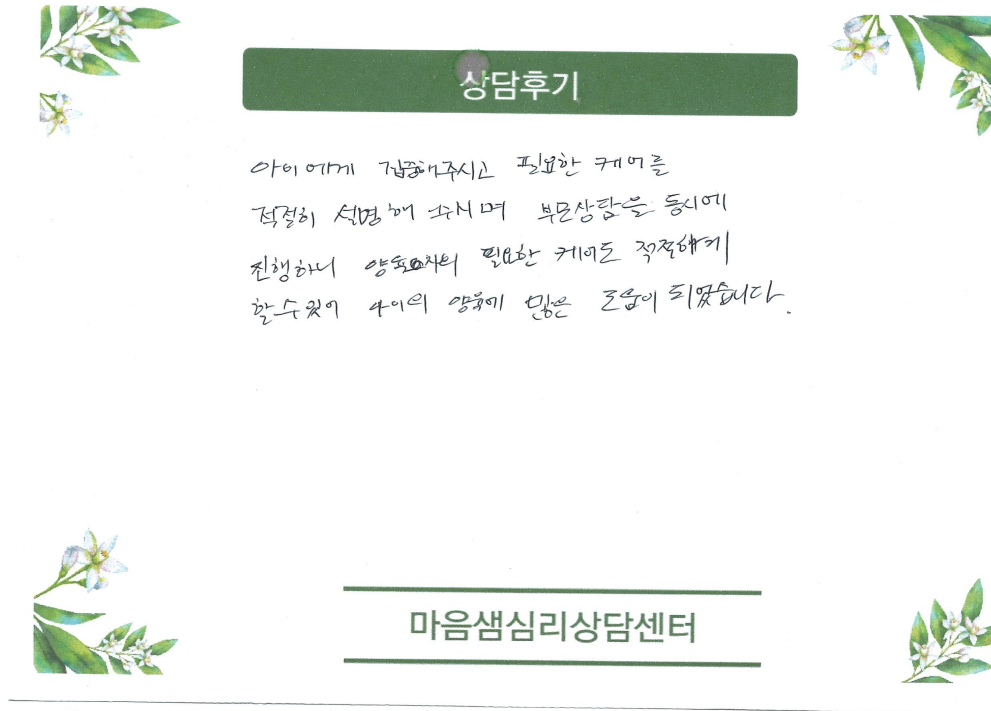 상담후기
아이에게 집중해주시고 필요한 케어를
적절히 설명해 주시며 부모상담을 동시에
진행하니 양육자의 필요한 케어도 적절하게
할 수 있어 아이의 양육에 많은 도움이 되었습니다.
마음샘심리상담센터